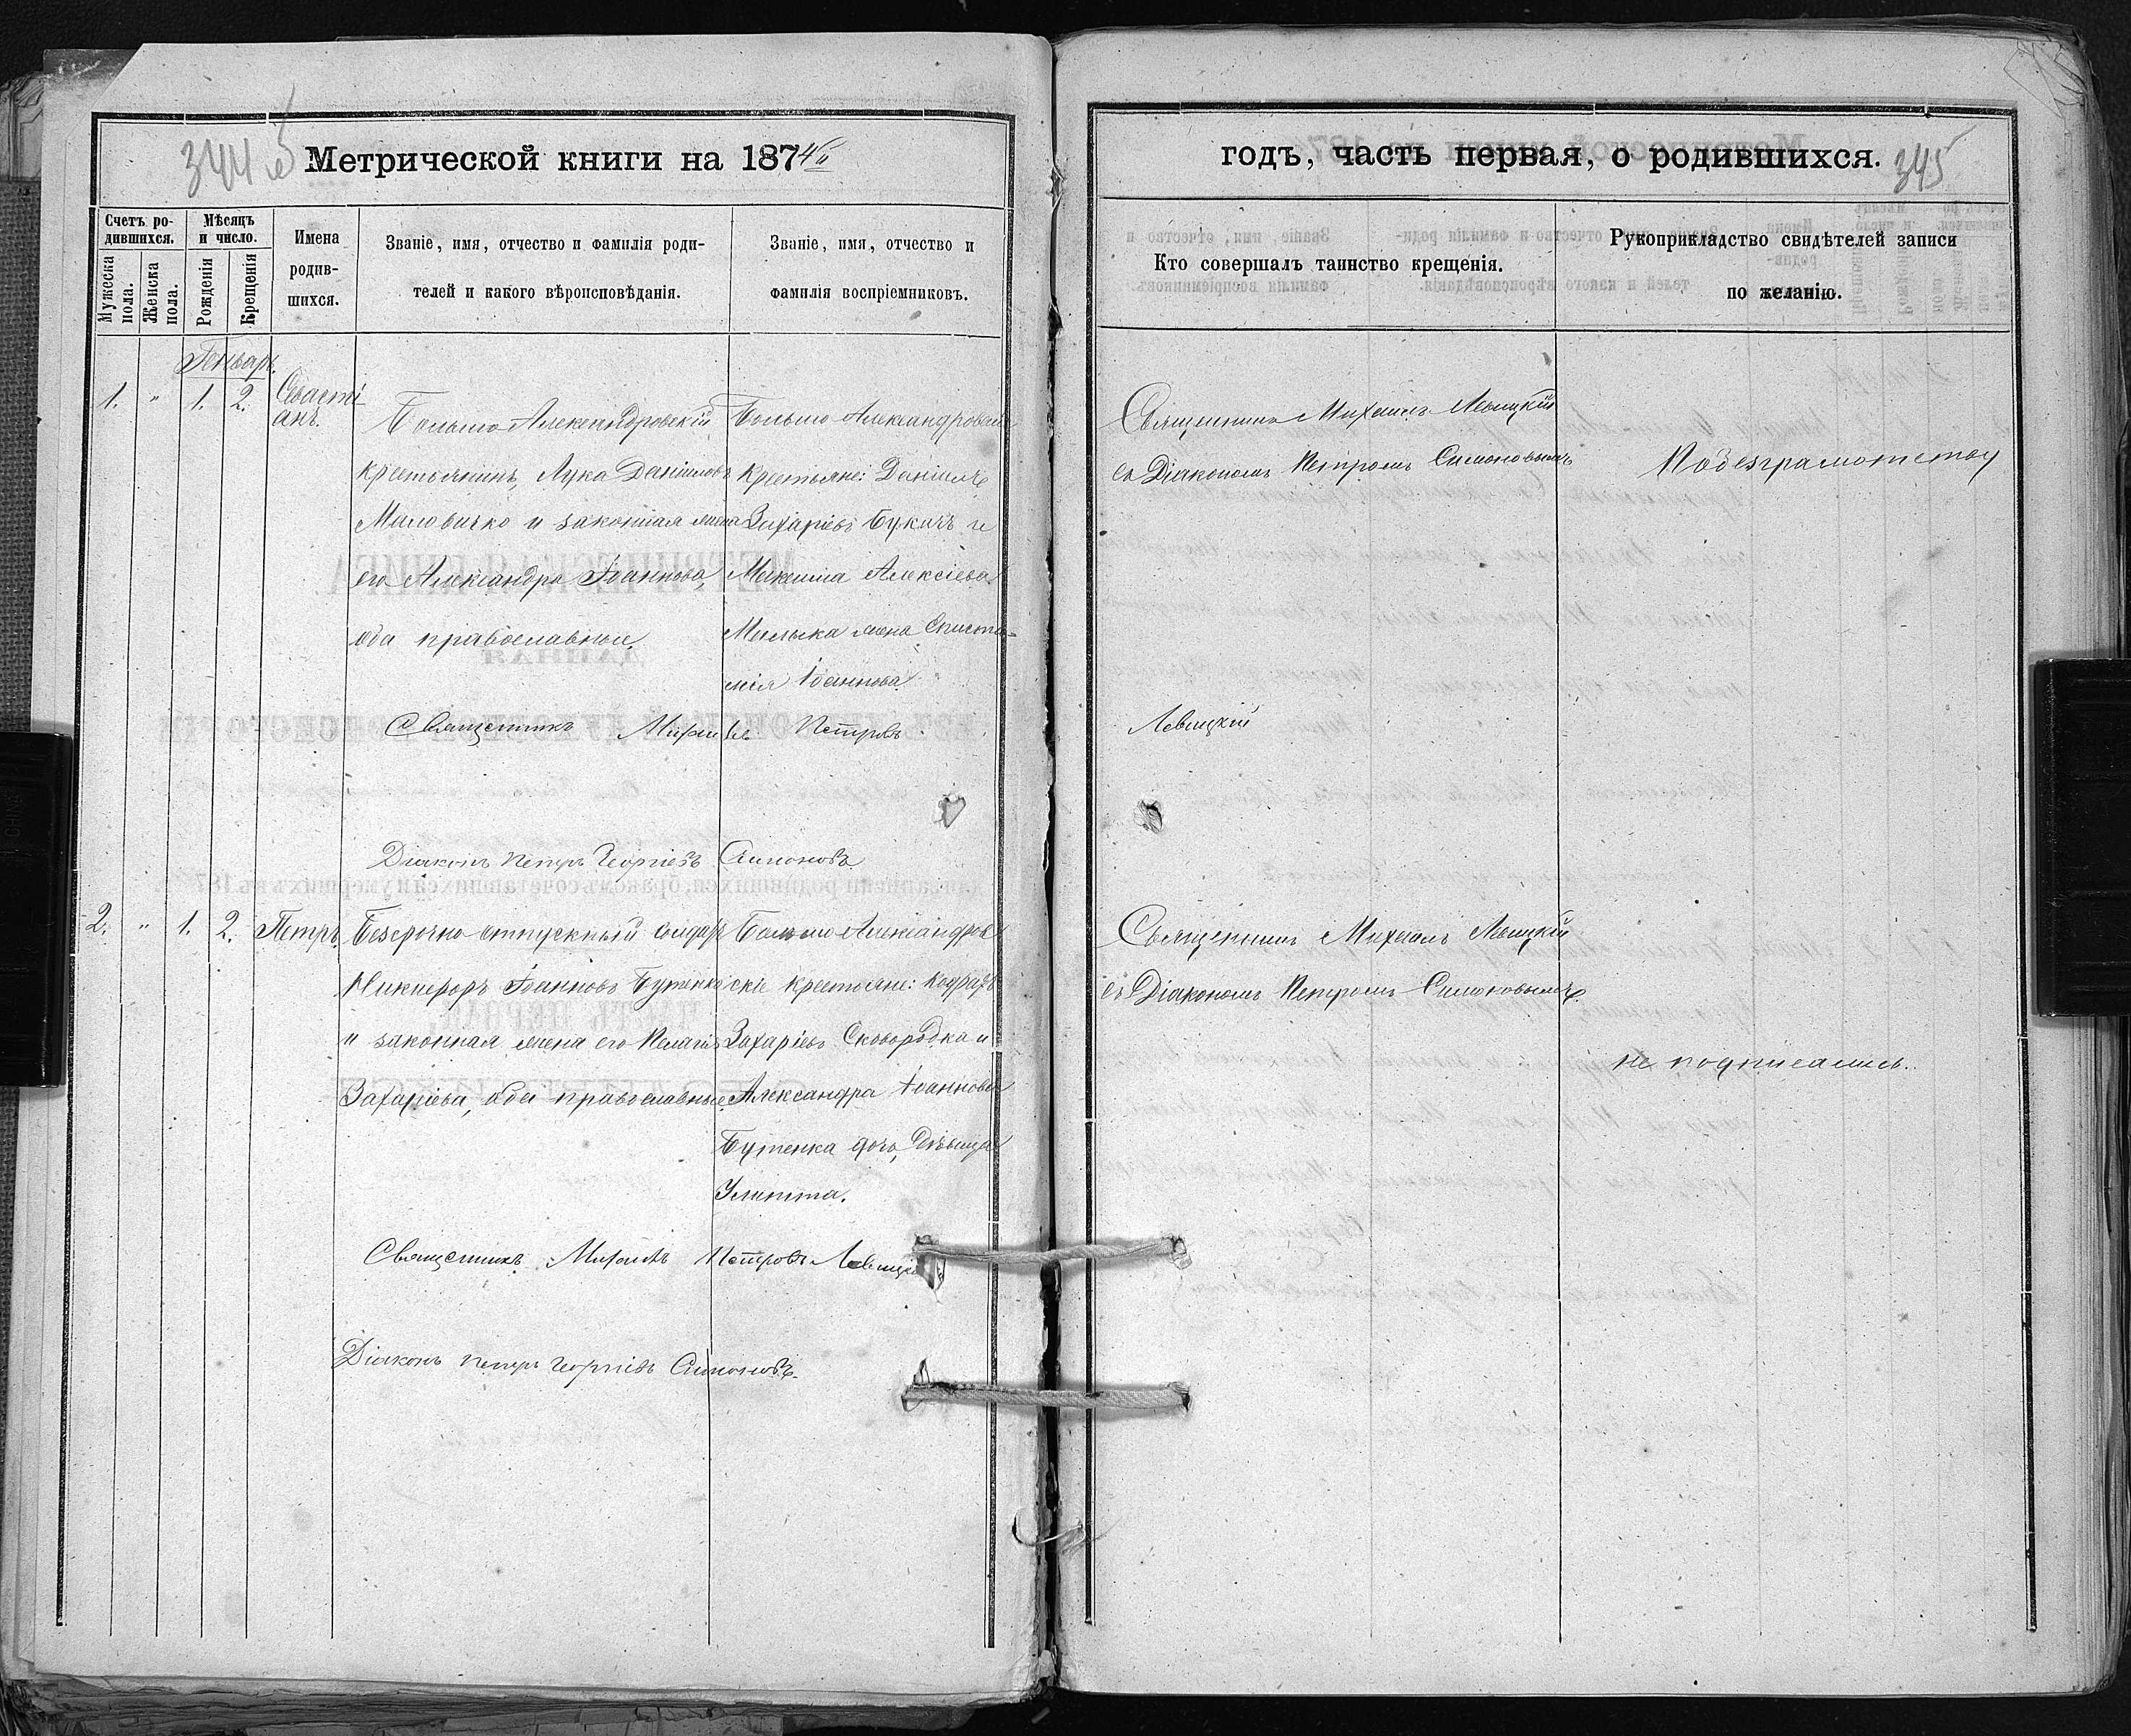 344 об
Метрической книги на 1874й
годъ, часть первая, о родившихся.
345
Счетъ ро-
дившихся.
Мужеска
пола.
Женска
пола.
Мѣсяцъ
и число.
Рожденія
Крещенія
Имена
родив-
шихся.
Званіе, имя, отчество и фамилія роди-
телей и какого вѣроисповѣданія.
Званіе, имя, отчество и
фамилія воспріемниковъ.
Кто совершалъ таинство крещенія.
Рукоприкладство свидѣтелей записи
по желанію.
Генварь.
1. " 1. 2.
Севасті-
анъ.
Больше-Александровскій
крестьянинъ, Лука Даніиловъ
и законная жена
его Александра Іоаннова,
оба православные.
Больше-Александровскіе
крестьяне: Даніилъ
Захаріевъ и
Алексіева
жена
Іоаннова.
Священникъ Михаилъ Левицкій
съ Діакономъ Петромъ Симоновымъ
По безграмотству
Священникъ Михаилъ Петровъ Левицкій
Діаконъ Петръ Георгіевъ Симоновъ
2. " 1. 2. Петръ.
Безсрочно отпускный солдатъ
Никифоръ Іоанновъ Бутенко
и законная жена его Пелагія
Захаріева, оба православные.
Больше Александров-
скіе крестьяне:
Захаріевъ Сковородка и
Александра Іоаннова
Бутенка дочь, дѣвица
Улита.
Священникъ Михаилъ Левицкій
съ Діакономъ Петромъ Симоновымъ
не подписались.
Священникъ Михаилъ Петровъ Левицкій
Діаконъ Петръ Георгіевъ Симоновъ.